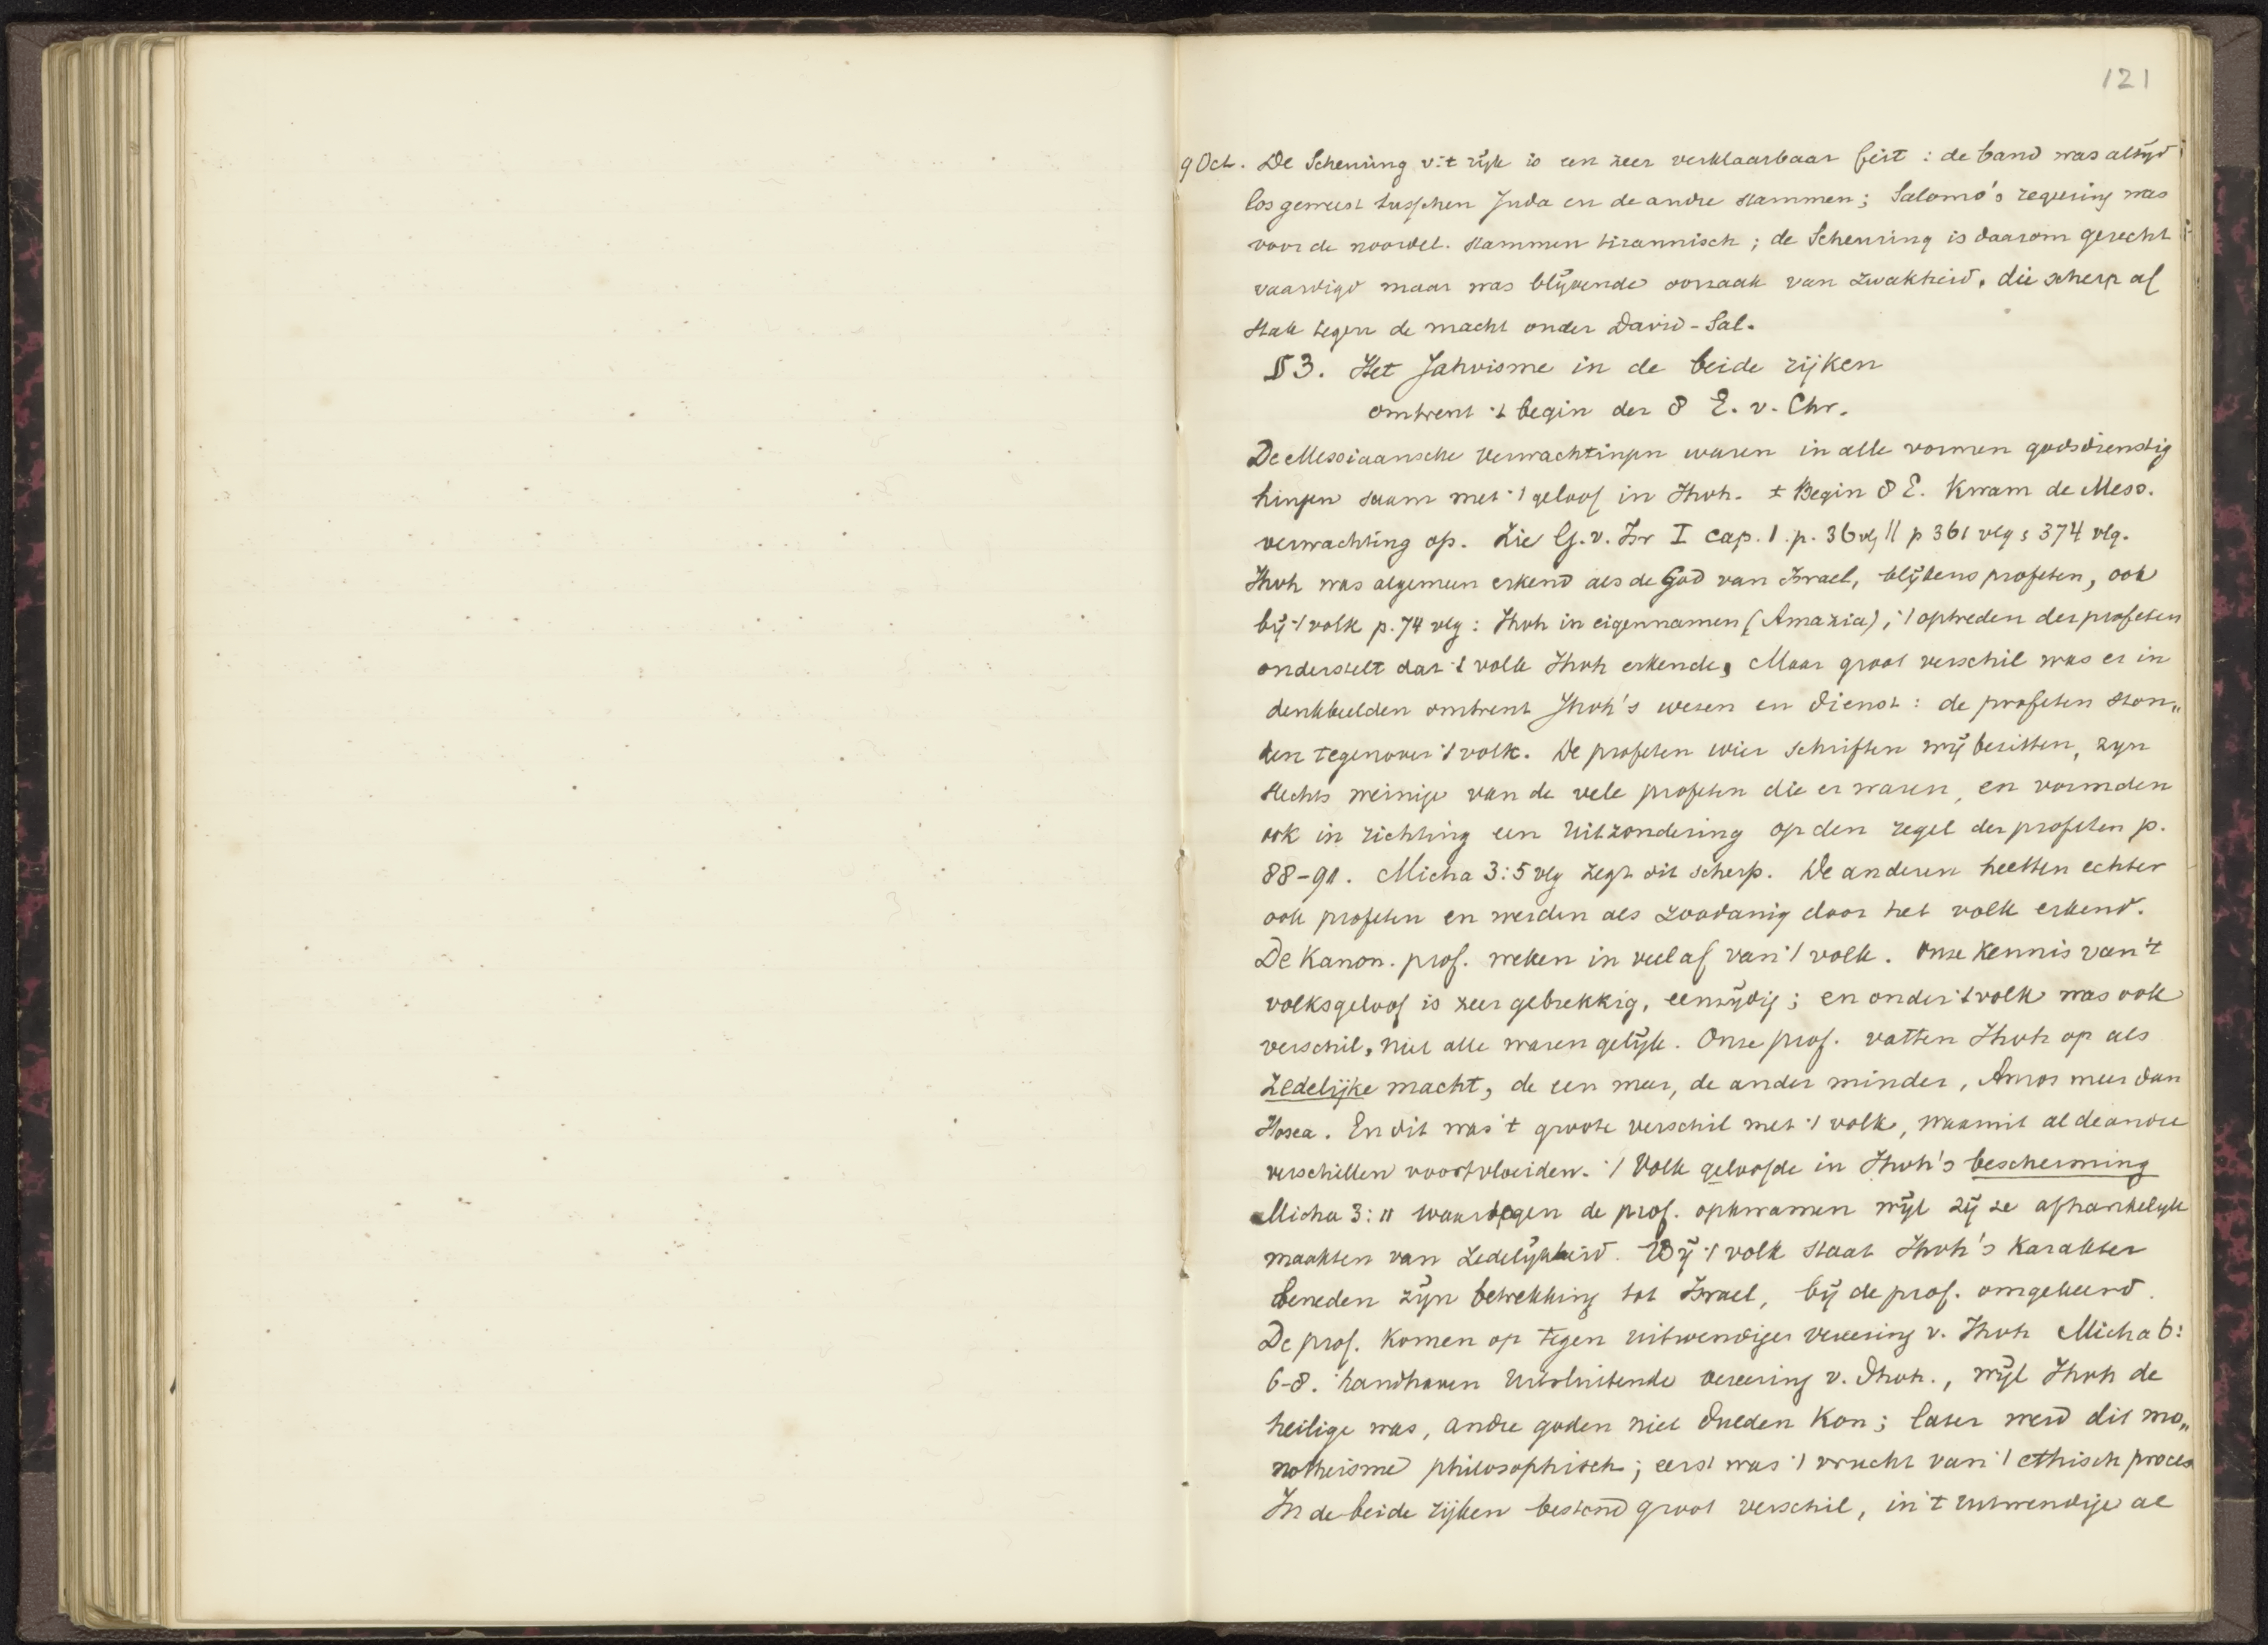 121
9 Oct. De Scheuring v. 't rijk is een zeer verklaarbaar feit : de band was altijd
los geweest tusschen Juda en de andre stammen; Salomo's regeering was
voor de noordel. stammen tirannisch ; de Scheuring is daarom gerecht
vaardigd maar was blijvende oorzaak van zwakheid, die scherp af
stak tegen de macht onder David-Sal.
§ 3. Het Jahvisme in de beide rijken
omtrent 't begin der 8 E. v. Chr.
De Messiaansche verwachtingen waren in alle vormen godsdienstig
hingen saam met 't geloof in Jhvh. ± Begin 8 E. kwam de Mess.
verwachting op. Zie G. v. Isr I cap. 1. p. 36 vlg || p 361 vlg ; 374 vlg.
Jhvh was algemeen erkend als de God van Israel, blijkens profeten, ook
bij 't volk p. 74 vlg : Jhvh in eigennamen (Amazia) ; 't optreden der profeten
onderstelt dat 't volk Jhvh erkende, Maar groot verschil was er in
denkbeelden omtrent Jhvh's wezen en dienst : de profeten ston„
den tegenover 't volk. De profeten wier schriften wij bezitten, zyn
slechts weinige van de vele profeten die er waren, en vormden
ook in richting een uitzondering op den regel der profeten p.
88-91. Micha 3:5 vlg zegt dit scherp. De anderen heetten echter
ook profeten en werden als zoodanig door het volk erkend.
De Kanon. prof. weken in veel af van 't volk. Onze kennis van 't
volksgeloof is zeer gebrekkig, eenzijdig ; en onder 't volk was ook
verschil, niet alle waren gelijk. Onze prof. vatten Jhvh op als
zedelijke macht, de een meer, de ander minder, Amos meer dan
Hosea. En dit was 't groote verschil met 't volk, waaruit al de andre
verschillen voortvloeiden. 't Volk geloofde in Jhvh's bescherming
Micha 3:11 waartegen de prof. opkwamen wijl zij ze afhankelyk
maakten van zedelijkheid. Bij 't volk staat Jhvh's karakter
beneden zijn betrekking tot Israel, bij de prof. omgekeerd.
De prof. komen op tegen uitwendige vereering v. Jhvh Micha 6:
6-8. handhaven uitsluitende vereering v. Jhvh., wijl Jhvh de
heilige was, andre goden niet dulden kon ; later werd dit mo„
notheisme philosophisch ; eerst was 't vrucht van 't ethisch proces
In de beide rijken bestond groot verschil, in 't uitwendige al